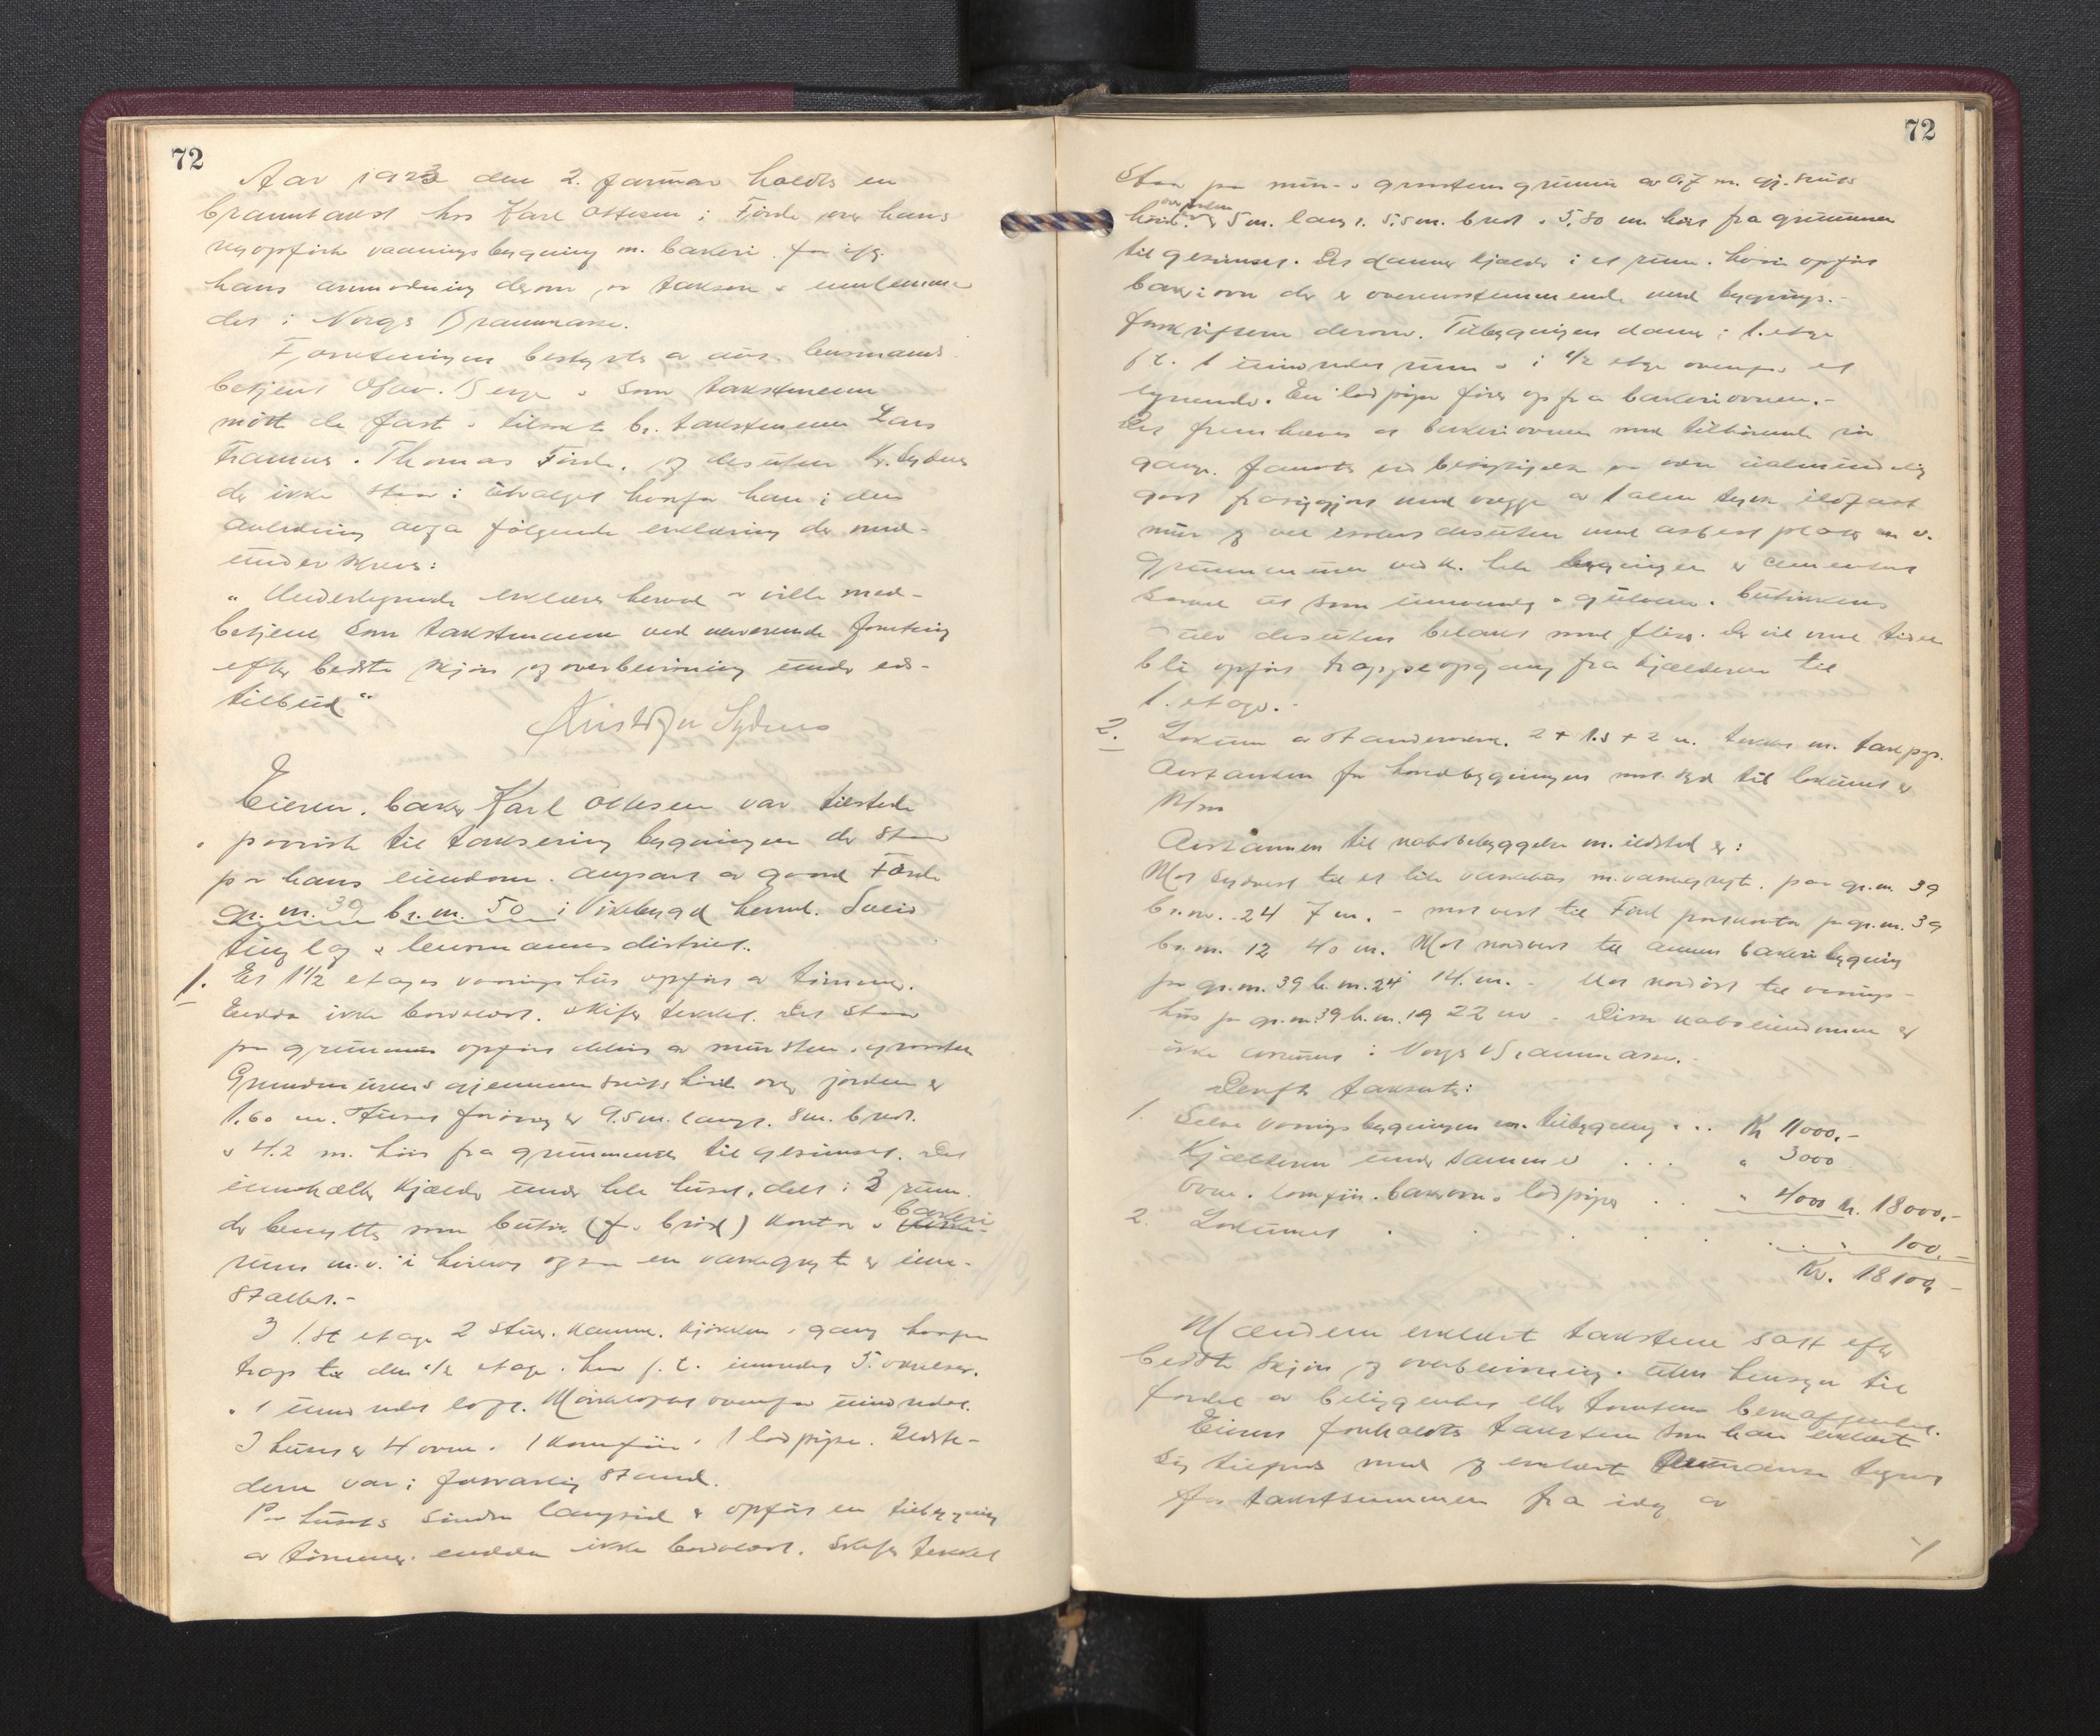 72
Aar 1923 den 2. januar holdts en
branntakst hos Karl Ottesen i Förde over hans
nyopförte vaaningsbygning m. bakeri for ifg.
hans anmodning derom for taksten
det i Norges Brannkasse.
Forretningen bestyrtes av lensmands
betjent Olav Berge og som takstmenn
mötte de fast br. takstmenn Lars
Thomas Förde, og desuten Kr. Sydnes
der ikke staar i utvalget hvorfor han i den
anledning avga fölgende erklæring der med-
underskrives:
" Undertegnede erklærer herved at ville med-
betjene som takstmann ved nærværende forretning
efter bedste skjön og overbevisning under eds-
tilbud"
Kristofer Sydnes
Eieren, baker Karl Ottesen var tilstede
og paaviste til taksering bygningen der staar
paa hans eiendom av gaard Förde
gr. nr. 39 br. nr. 50 i Vikebygd herred. Sveio
tinglag og lensmannsdistrikt.
1. Et 1 1/2 etages vaaningshus opfört av tömmer.
Endda ikke bordklædt. Skifer tekket. Det staar
paa grunnmur opfört delvis av mursten og graasten
Grunnmurens gjennemsnits höide over jorden er
1.60 m. Huset forövrig er 9.5 m. langt. 8 m. bredt.
og 4.2 m. höit fra grunnmuren til gesimset. Det
inneholder kjælder under hele huset, delt i 3 rum.
der benyttes som butik (f. bröd) kontor og bakeri-
rum m.v. i hvilket ogsaa en vaskegryte er inn-
stallert.-
I 1.ste etage 2 stuer. kammer. kjökken og gang hvorfra
trap til den 1/2 etage. her f. t. innredet 3 værelser.
og 1 uinnredet loft. Mörkeloftet ovenfor uinnredet.
I huset er 4 ovne. 1 komfür. 1 lodpipe. Ildste-
dene var i forsvarlig stand.
Paa husets söndre langside er opfört en tilbygning
av tömmer. endda ikke bordklædt. Skifer tekket
72
Staar paa mur- og graastensgrunnmur av 0.7 m. gj.snits
höide over jorden 5 m. lang. 5.5 m. bred og 5.80 m höi fra grunnmuren
til gesimset. Det danner kjælder i et rum. hvori opfört
bakerovn der er overensstemmende med bygnings-
forskriftene derom. Tilbygningen danner i 1. etage
f.t. 1 uinnredet rum og i 1/2 etage ovenfor et
lignende. En lodpipe förer op fra bakeriovnen.-
Det fremhæves at bakeriovnen med tilhörende rör
gange fantes ved besigtigelse at være ualmindelig
godt frasiggjort med vægge av 1 alen tykk ildfast
mur og vel isolert desuten med asbest plater m.v.
Grunnmuren ved hele bygningen er cementert
saavel ut som innvendig og gulvene. butikkens
gulv desuten belagt med fliser. Der vil med tiden
bli opfört trappeopgang fra kjælderen til
1. etage.-
2. Lokum av standerverk. 2 + 1.5 + 2 m. tekket m. takpap.
Avstanden fra hovedbygningen mot syd til lokumet er
Avstannen til nabobebyggelse m. ildsted er:
Mot sydvest til et lite vaskehus m. vaskegryte. paa gr.nr. 39
br.nr. 24 7 m. - mot vest til Förde postkontor paa gr.nr. 39
br.nr. 12 40 m. Mot nordvest til annen bakeribygning
paa gr.nr. 39 br.nr. 24 14 m. - Mot nordöst til vaanings-
hus paa gr.nr. 39 br.nr. 19 22 m - Disse naboeiendommer er
ikke assurert i Norges Brannkasse.-
Derefter takserte:
1. Selve vaaningsbygningen m. tilbygning . . . Kr 11000.-
Kjælderen under samme . . . " 3000
Ovne. komfür. bakerovn og lodpiper . . " 4000 kr. 18000.-
2. Lokumet . . . . . . . . 100.-
Kr. 18100,-
Mændene erklærte takstene satt efter
bedste skjön og overbevisning. uten hensyn til
fordel av beliggenhet eller tomtens beskaffenhet.
Eieren foreholdtes taksten som han erklærte
sig tilfreds med og erklærte Brannkassen tegnet
for takstsummen fra idag av